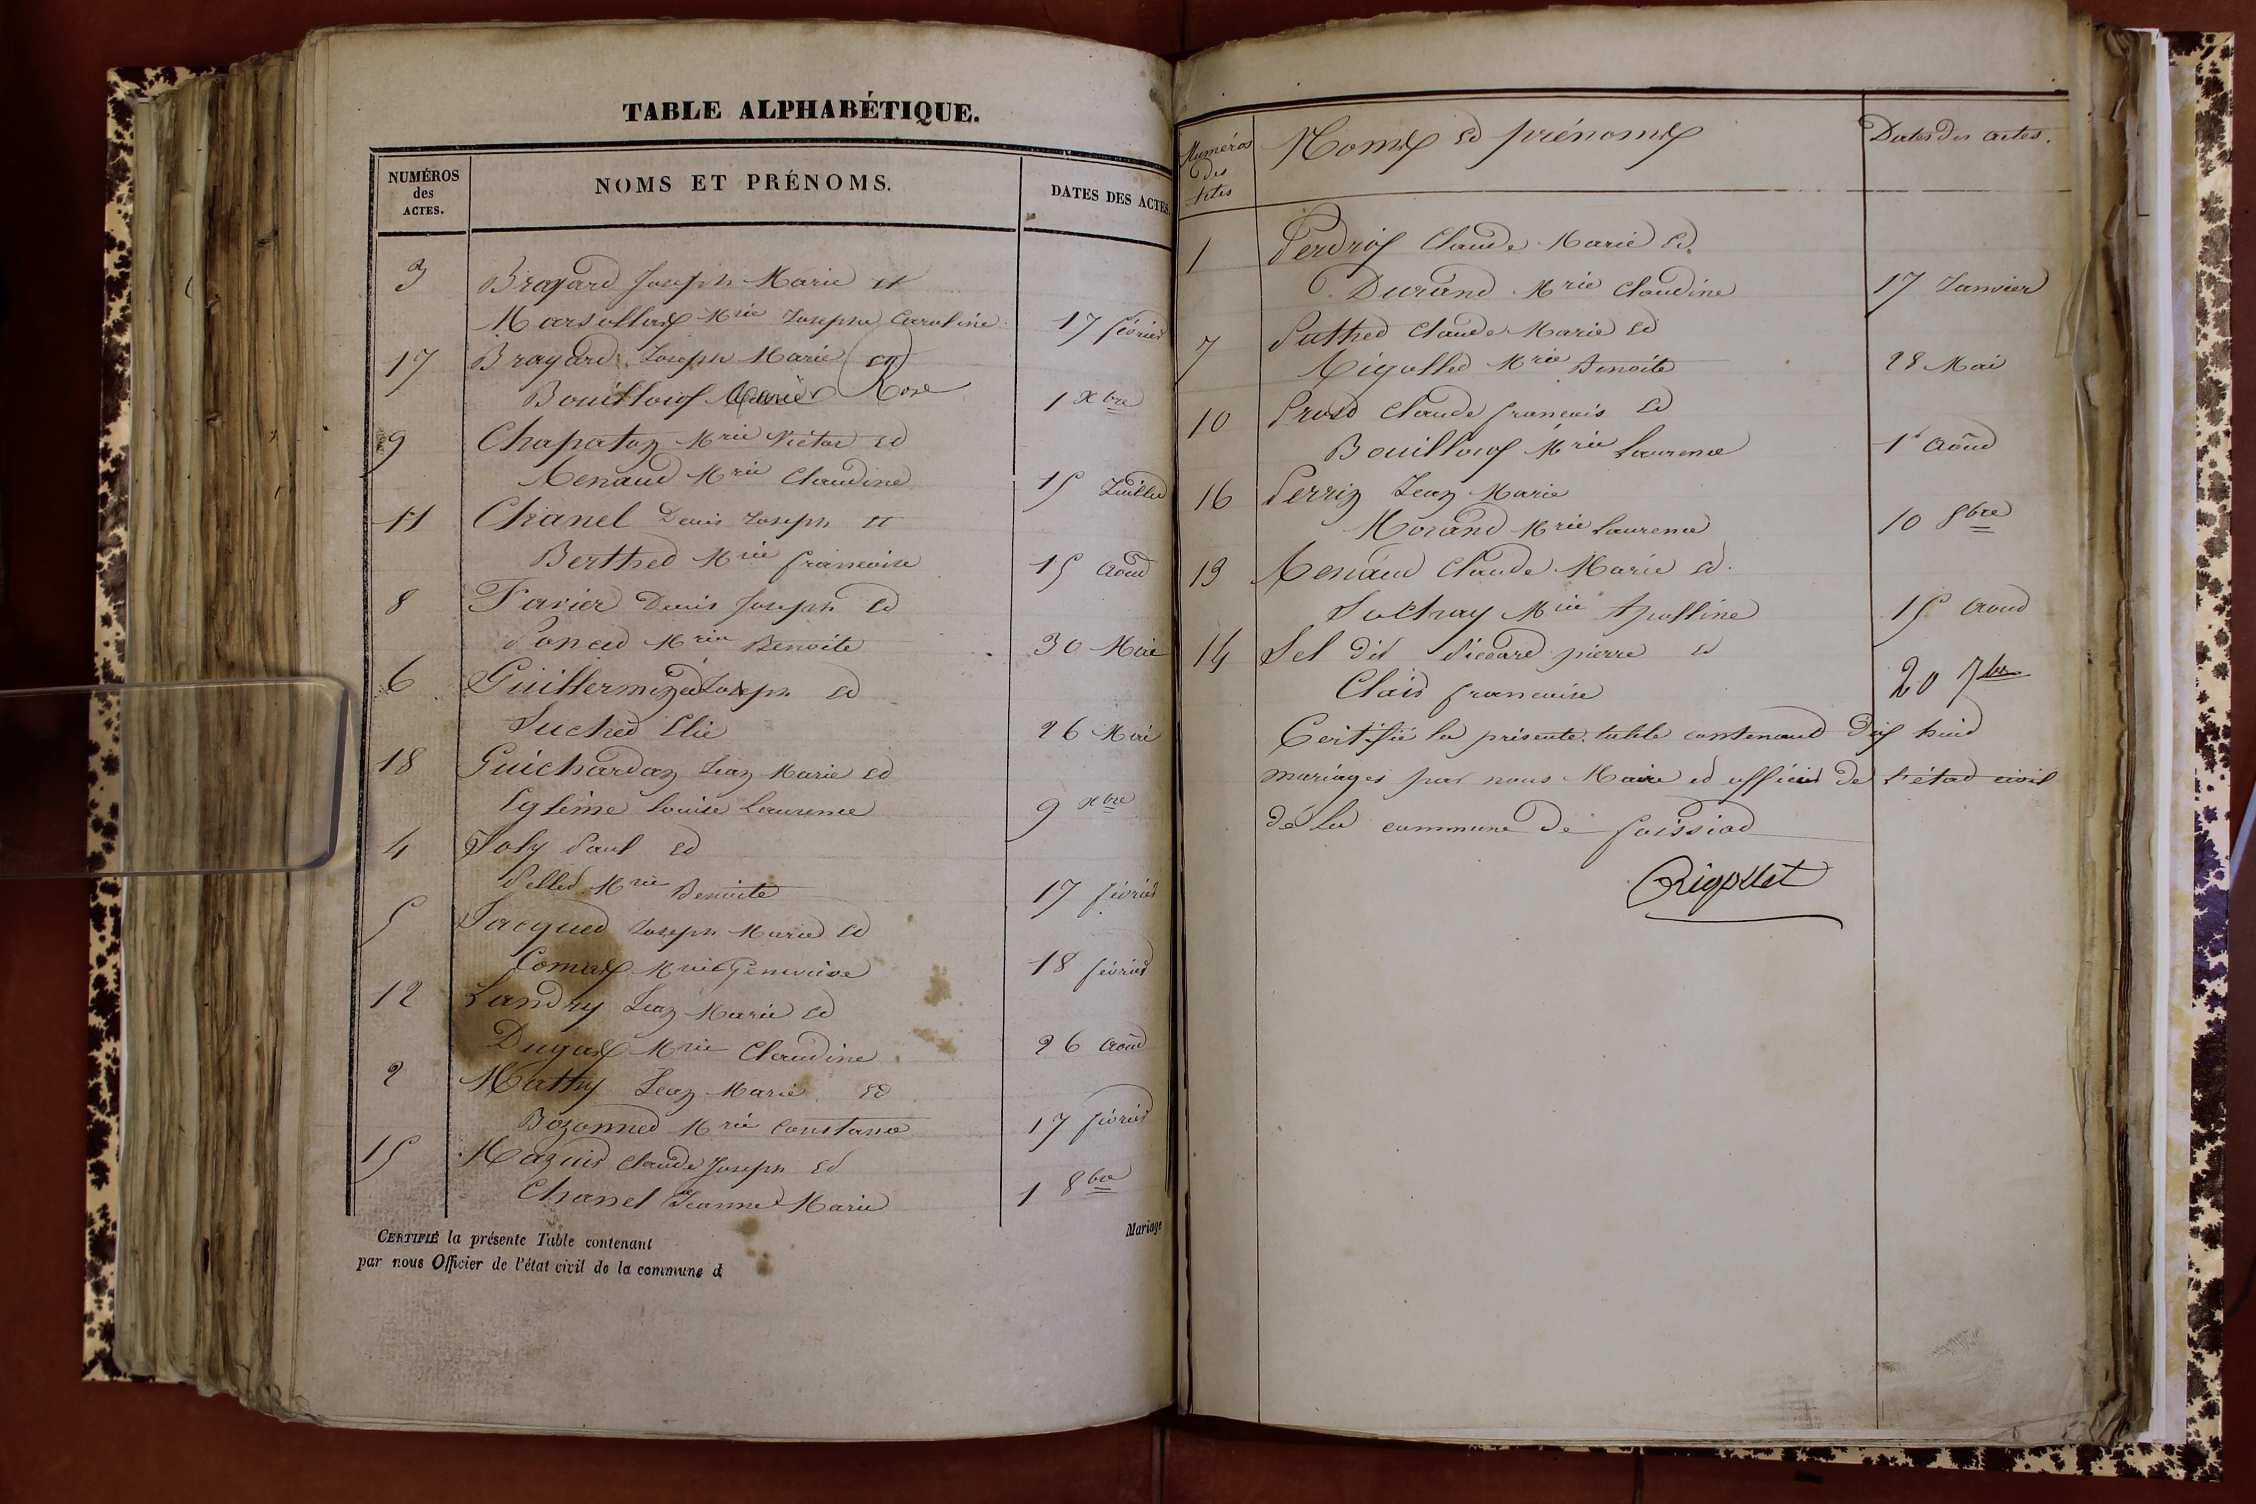 TABLE ALPHABÉTIQUE.
NUMÉROS
des
ACTES.
NOMS ET PRÉNOMS.
DATES DES ACTES.
3 Brayard Joseph Marie et
Marsollat Mrie Josephe Caroline 17 février
17 Brayard Joseph Marie et
Bouilloux Marie Rose 1 Xbre
9 Chapaton Mrie Victor et
Renaud Mrie Claudine 15 Juillet
11 Chanel Denis Joseph et
Berthet Mrie francoise 15 Août
8 Favier Denis Joseph et
Poncet Mrie Benoite 30 Mai
6 Joseph et
Suchet Elie 26 Mai
18 Guichardon Jean Marie et
Louise Laurence 9 Xbre
4 Joly Paul et
Pellet Mrie Benoite 17 février
5 Jacquet Joseph Marie et
Comas Mrie Genevieve 18 février
12 Landry Jean Marie et
Dugas Mrie Claudine 26 Août
2 Mathy Jean Marie et
Bozonnet Mrie Constance 17 février
15 Mazuis Claude Joseph et
Chanel Jeanne Marie 1 8bre
CERTIFIÉ la présente Table contenant
Mariage
par nous Officier de l'état civil de la commune d
Numéros
des
Actes
Noms et prénoms
Dates des actes.
1 Perdrix Claude Marie et
Durand Mrie Claudine 17 Janvier
7 Puthet Claude Marie et
Rigollet Mrie Benoite 28 Mai
10 Prost Claude francois et
Bouilloux Mrie Laurence 1er Août
16 Perrin Jean Marie
Morand Mrie Laurence 10 8bre
13 Renaud Claude Marie et
Mrie Apolline 15 Aout
14 Sel dit Piccard pierre et
Clais francoise 20 7bre
Certifié la présente table contenant dix huit
mariages par nous Maire et officier de l'état civil
de la commune de foissiat
Rigollet